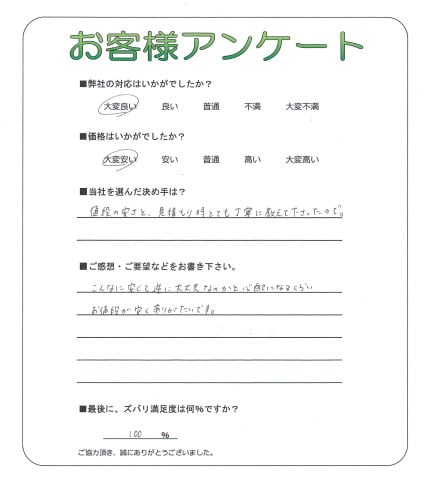 お客様アンケート
■弊社の対応はいかがでしたか？
大変良い 良い 普通 不満 大変不満
■価格はいかがでしたか？
大変安い 安い 普通 高い 大変高い
■当社を選んだ決め手は？
値段の安さと、見積もり時とても丁寧に教えて下さったので。
■ご感想・ご要望などをお書き下さい。
こんなに安くて逆に大丈夫なのかと心配になるくらい
お値段が安くありがたいです。
■最後に、ズバリ満足度は何％ですか？
100 ％
ご協力頂き、誠にありがとうございました。